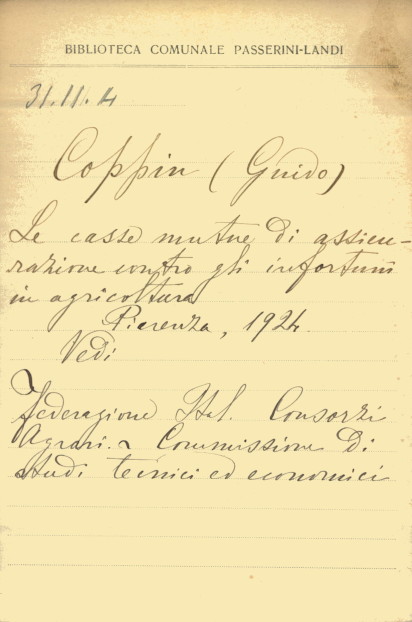 BIBLIOTECA COMUNALE PASSERINI-LANDI
31.11.4
Coppin (Guido)
Le casse mutue di assicu-
razione contro gli infortuni
in agricoltura
Piacenza, 1924.
Vedi
Federazione Ital. Consorzi
Agrari. Commissione di
studi tecnici ed economici